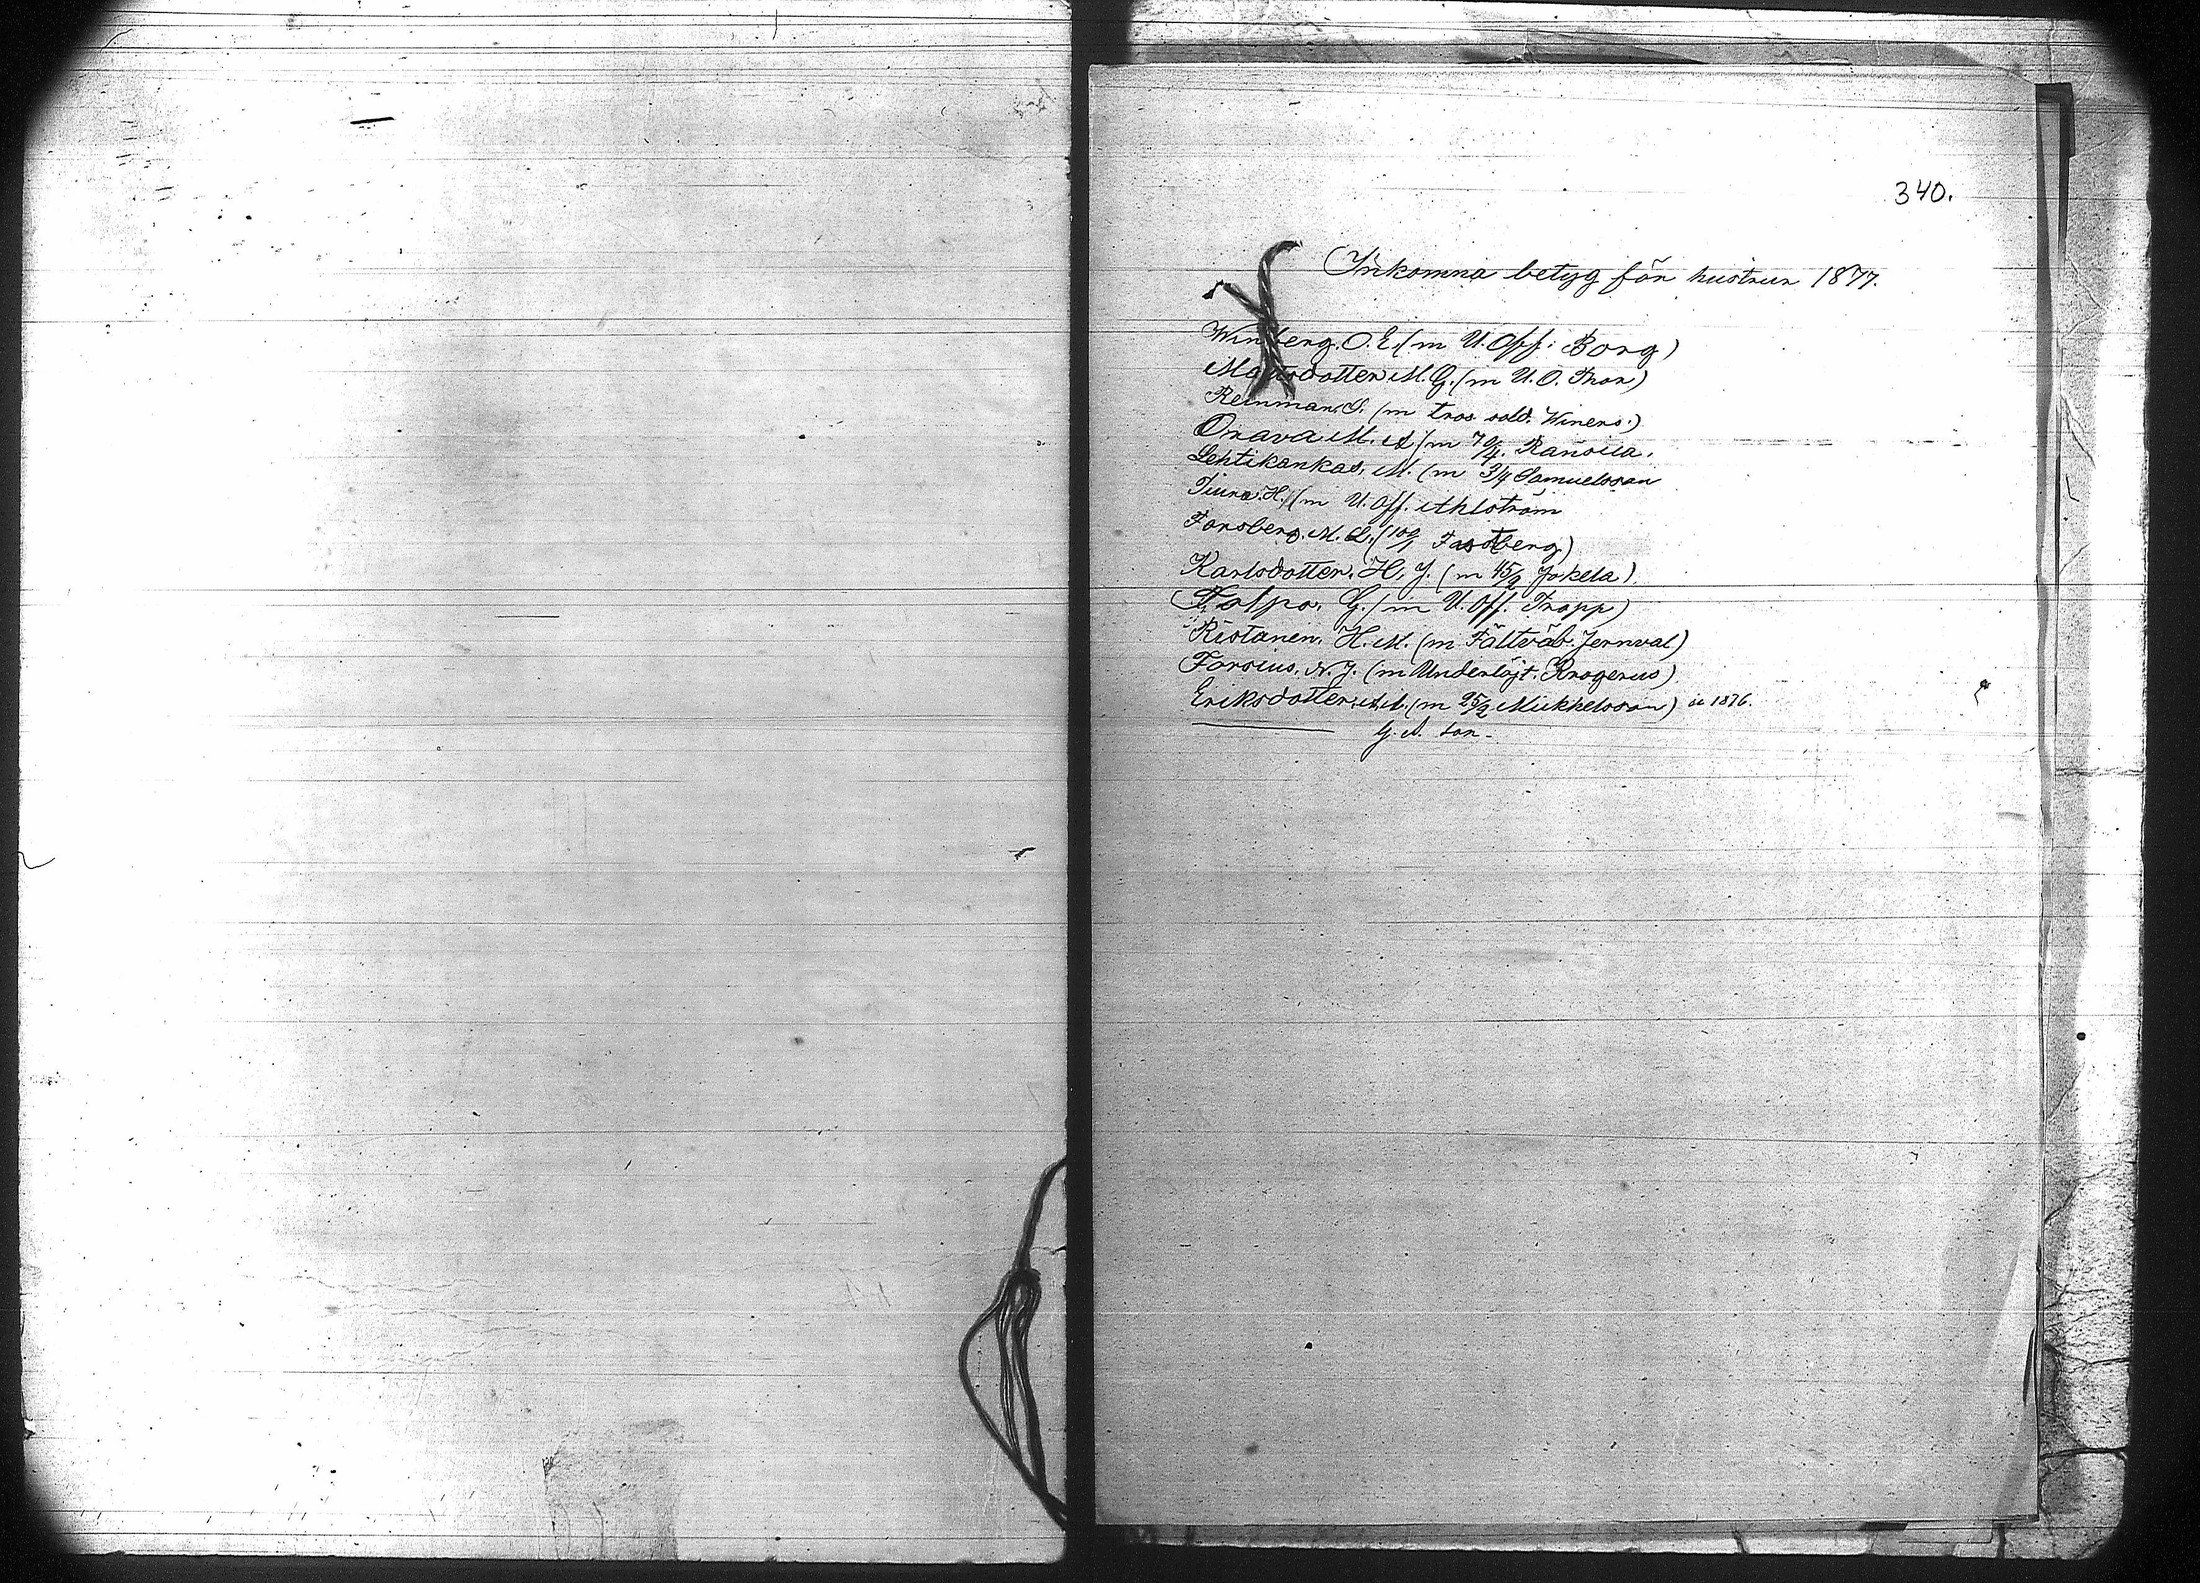 340.
Inkomna betyg för hustrur 1877.
Winberg. O. E. (m U. Off: Borg)
Matsdotter M. G. (m U. O. Thor)
Reinman. S. (m tros sold. Winers.)
Orava M. A (m 70/4. Ransila.
Lehtikankas, M. (m 3/4 Samuelsson
Tiura. H. (m U. Off. Ahlström
Forsberg. M. L. (100/1 Fastberg)
Karlsdotter. H. J. (m 45/2 Jokela)
Talpo. G. (m U. Off. Trapp)
Ristanen. H. M. (m Fältväb. Jernval)
Forsius. N. J. (m Underlöjt. Krogerus)
Eriksdotter. A. M. (m 25/2 Mickhelsson) 1876.
G. A. son -